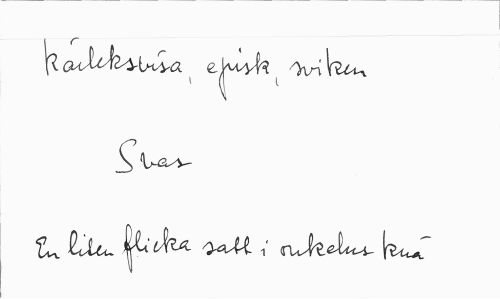 kärleksvisa, episk, sviken
Svar
En liten flicka satt i onkelns knä